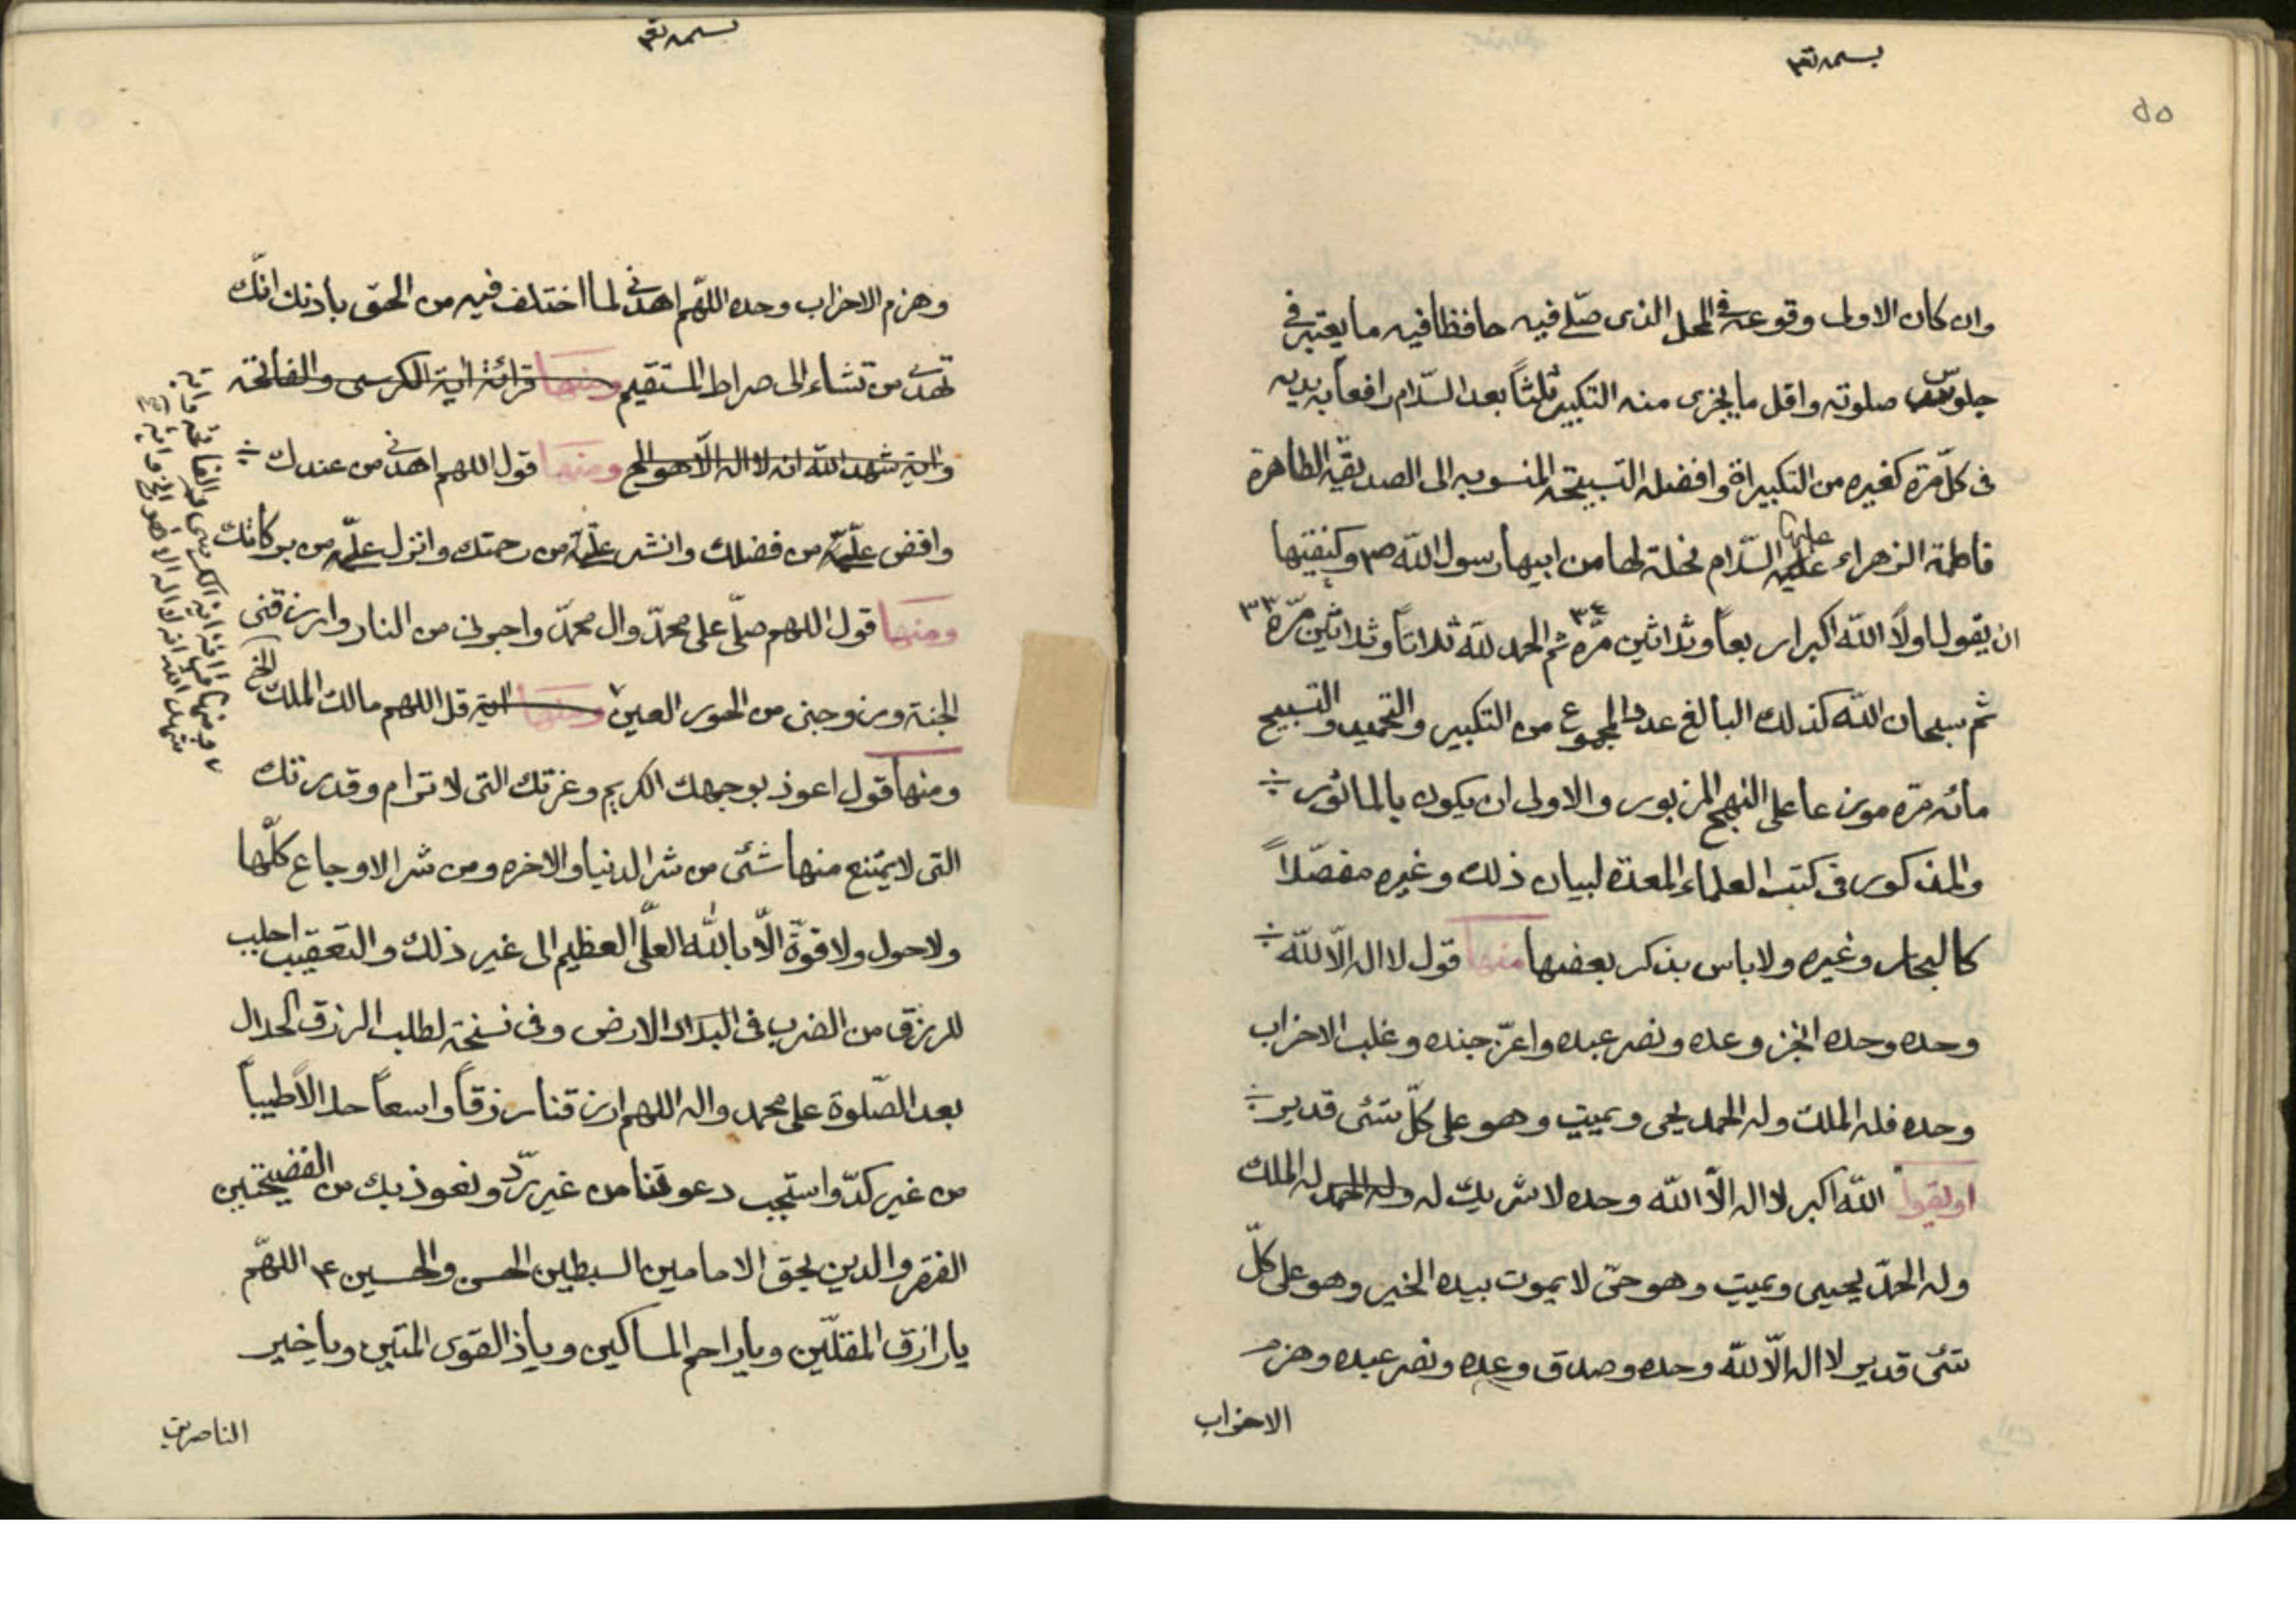 بسمه تعا
٥٥
وان كان الاولى وقوعه فى المحل الذى صلّى فيه حافظا فيه ما يعتبر فى
جلوس صلوته واقل ما يجزى منه التكبير ثلثاً بعد السّلام رافعاً به يديه
فى كلّ مرّة كغيره من التكبيرات وافضله التسبيحة المنسوبه الى الصديقة الطاهرة
فاطمة الزهراء عليها السّلام نحلة لها من ابيها رسول اللّه ص وكيفيتها
ان يقول اولاً اللّه اكبر اربعاً وثلاثين مرّه ٣٤ ثم الحمد للّه ثلاثاً وثلاثين مرّة ٣٣
ثم سبحان اللّه كذلك البالغ عدد المجموع من التكبير والتحميد والتسبيح
مائه مرّه موزعا على النهج المزبور والاولى ان يكون بالماثور
والمذكور فى كتب العلماء المعدة لبيان ذلك وغيره مفصّلاً
كالبحار وغيره ولا باس بذكر بعضها منها قول لا اله الّا للّه
وحده وحده انجز وعده ونصر عبده واعزّ جنده وغلب الاحزاب
وحده فله الملك وله الحمد يحى ويميت وهو على كلّ شئى قدير
او يقول اللّه اكبر لا اله الّا اللّه وحده لا شريك له وله الحمد له الملك
وله الحمد يحيى ويميت وهو حىّ لا يموت بيده الخير وهو على كلّ
شئى قدير لا اله الّا للّه وحده وصدق وعده ونصر عبده وهزم
الاحزاب
بسمه تعا
وهزم الاحزاب وحده اللهّم اهدنى لما اختلف فيه من الحق باذنك انّك
تهدى من تشاء الى صراط المستقيم ومنها قرائة اية الكرسى والفاتحة
واية شهد اللّه انه لا اله الّا هو الخ ومنها قول اللهم اهدنى من عندك
وافض علىّ من فضلك وانشر علىّ من رحمتك وانزل علىّ من بركاتك
ومنها قول اللهم صلّ على محمدّ وال محمدّ واجرنى من النار وارزقنى
الجنة وزوجنى من الحور العين ومنها اية قل اللهم مالك الملك الخ
ومنها قرائة اية الكرسى والفاتحة واية
شهد اللّه انه لا اله الا هو الخ واية
ومنها قول اعوذ بوجهك الكريم وعزتك التى لا ترام وقدرتك
التى لا يمتنع منها شئى من شر الدنيا والاخره ومن شر الاوجاع كلّها
ولا حول ولا قوّة الّا باللّه العلّى العظيم الى غير ذلك والتعقيب اجلب
للرزق من الضرب فى البلاد الارض وفى نسخة لطلب الرزق الحلال
بعد الصّلوة على محمد واله اللهم ارزقنا رزقاً واسعاً حلالاً طيباً
من غير كدّ واستجب دعوتنا من غير ردّ ونعوذ بك من الفضيحتين
الفقر والدين بحق الامامين السبطين الحسن والحسين ع اللهّم
يا رازق المقلّين ويا راحم المساكين ويا ذالقوى المتين ويا خير
الناصرين